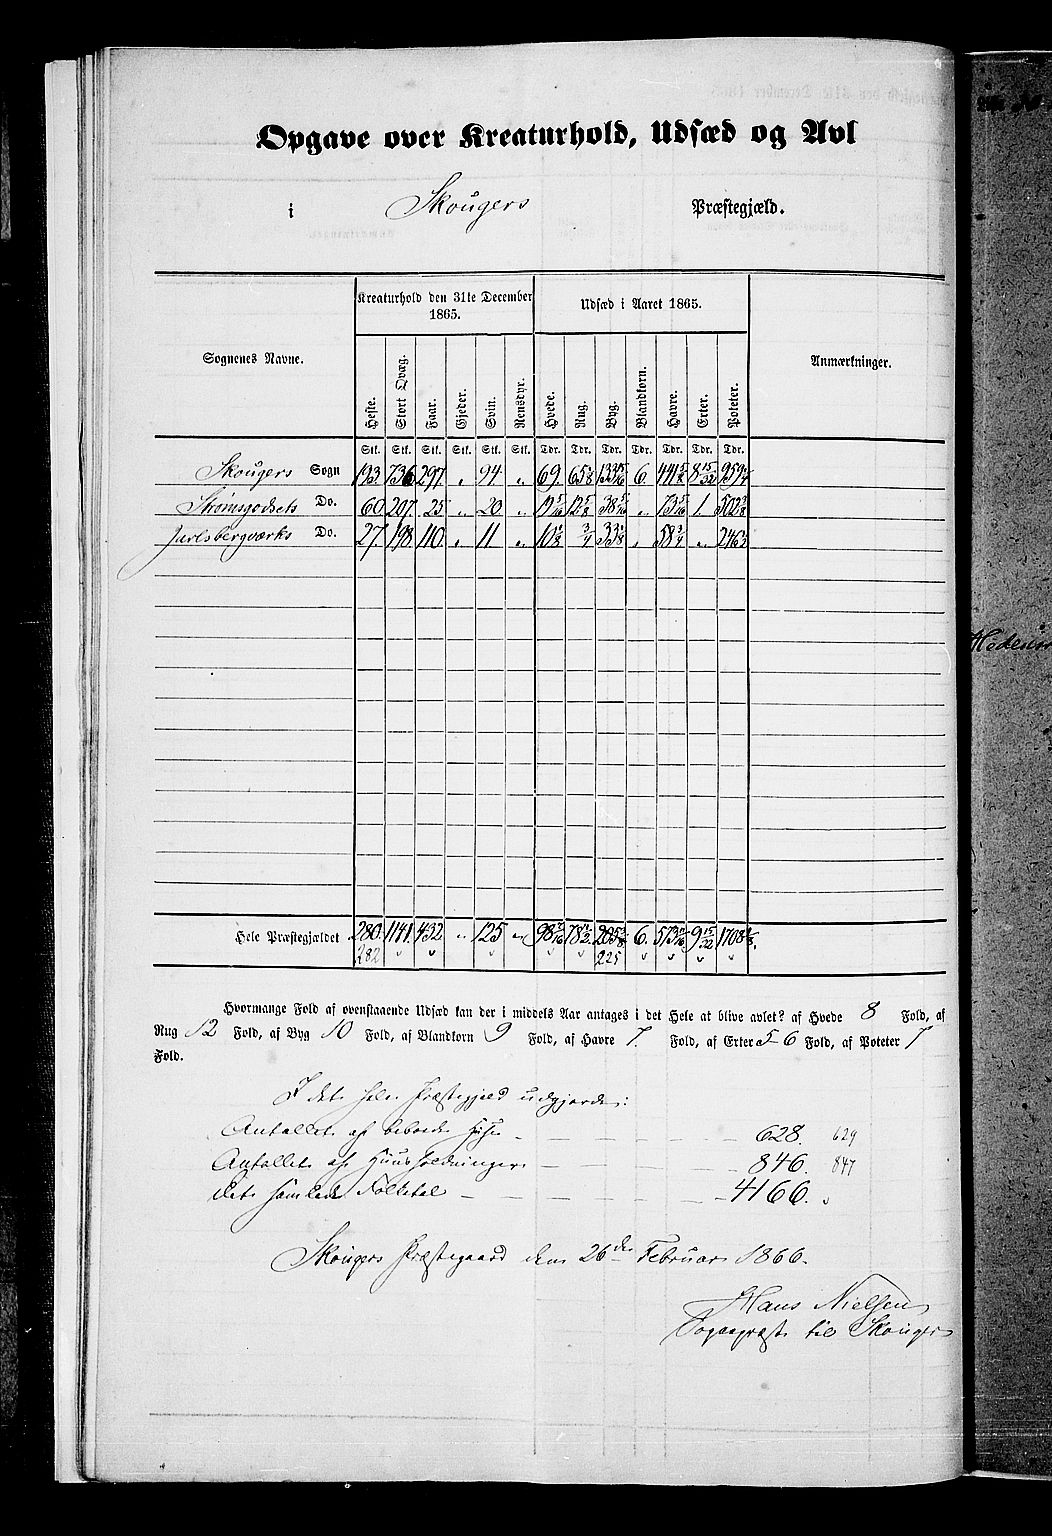 Opgave over Kreaturhold, Udsæd og Avl
i Skougers Præstegjæld.
Sognenes Navne. Kreaturhold den 31te December 1865. Udsæd i Aaret 1865. Anmærkninger.
Heste. Stort Qvæg. Faar. Gjeder. Svin. Rensdyr. Hvede. Rug. Byg. Blandkorn. Havre. Erter. Poteter.
Stk. Stk. Stk. Stk. Stk. Stk. Tdr. Tdr. Tdr. Tdr. Tdr. Tdr. Tdr.
Skougers Sogn 193 736 297 " 94 " 69. 65 1/8 6. 8 15/32
Strømsgodsets Do. 60 207 25 " 20 " 19 5/16 12 5/8 38 5/16 " 73 5/16 1. 502 3/8
Jarlsbergværks Do. 27 198 110 " 11 " 10 1/8 3/4 33 1/8 " 58 3/4 "
Hele Præstegjældet 280. 1141. 432 " 125 " 98 7/16 78 1/2 6. 9 15/32
282 225
Hvormange Fold af ovenstaaende Udsæd kan der i middels Aar antages i det Hele at blive avlet? af Hvede 8 Fold, af
Rug 12 Fold, af Byg 10 Fold, af Blandkorn 9 Fold, af Havre 7. Fold, af Erter 5-6 Fold, af Poteter 7
Fold.
I det hele Præstegjeld udgjorde:
Antallet af beboede Huse 628. 629
Antallet af Huusholdninger 846. 847
det samlede Folketal 4166.
Skougers Præstegaard den 26de Februar 1866.
Hans Nielsen
Sognepræst til Skouger
Hedenst